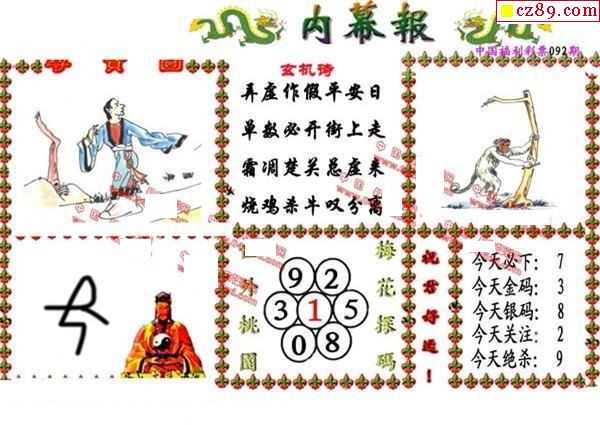 cz89.com
内幕報
中国福利彩票092期
字寶圖
玄机诗
弄虚作假平安日
单数必开街上走
霜凋楚关总虚来
烧鸡杀牛叹分离
外桃園
9 2
3 1 5
0 8
梅花探码
祝君好运!
今天必下: 7
今天金码: 3
今天银码: 8
今天关注: 2
今天绝杀: 9